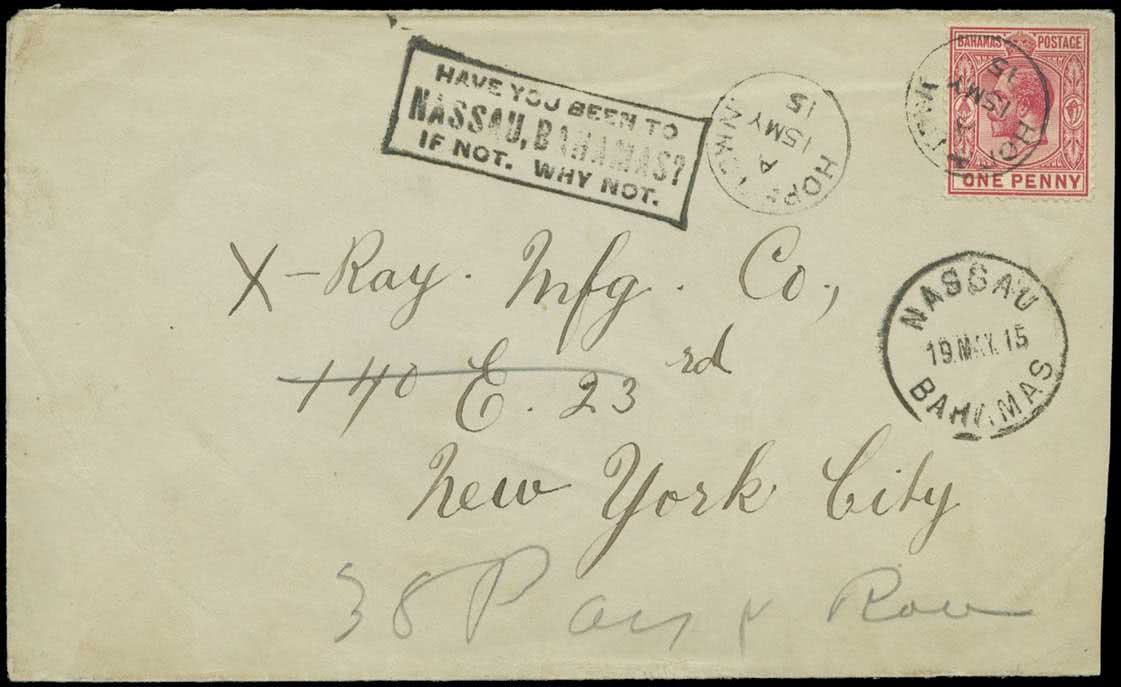 BAHAMAS POSTAGE
ONE PENNY
HAVE YOU BEEN TO
NASSAU, BAHAMAS?
IF NOT. WHY NOT.
HOPE TOWN
A
15 MY
15
HOPE TOWN
A
15 MY
15
NASSAU
19. MAY. 15
BAHAMAS
X-Ray. Mfg. Co.,
140 E. 23rd
New York City
38 Row